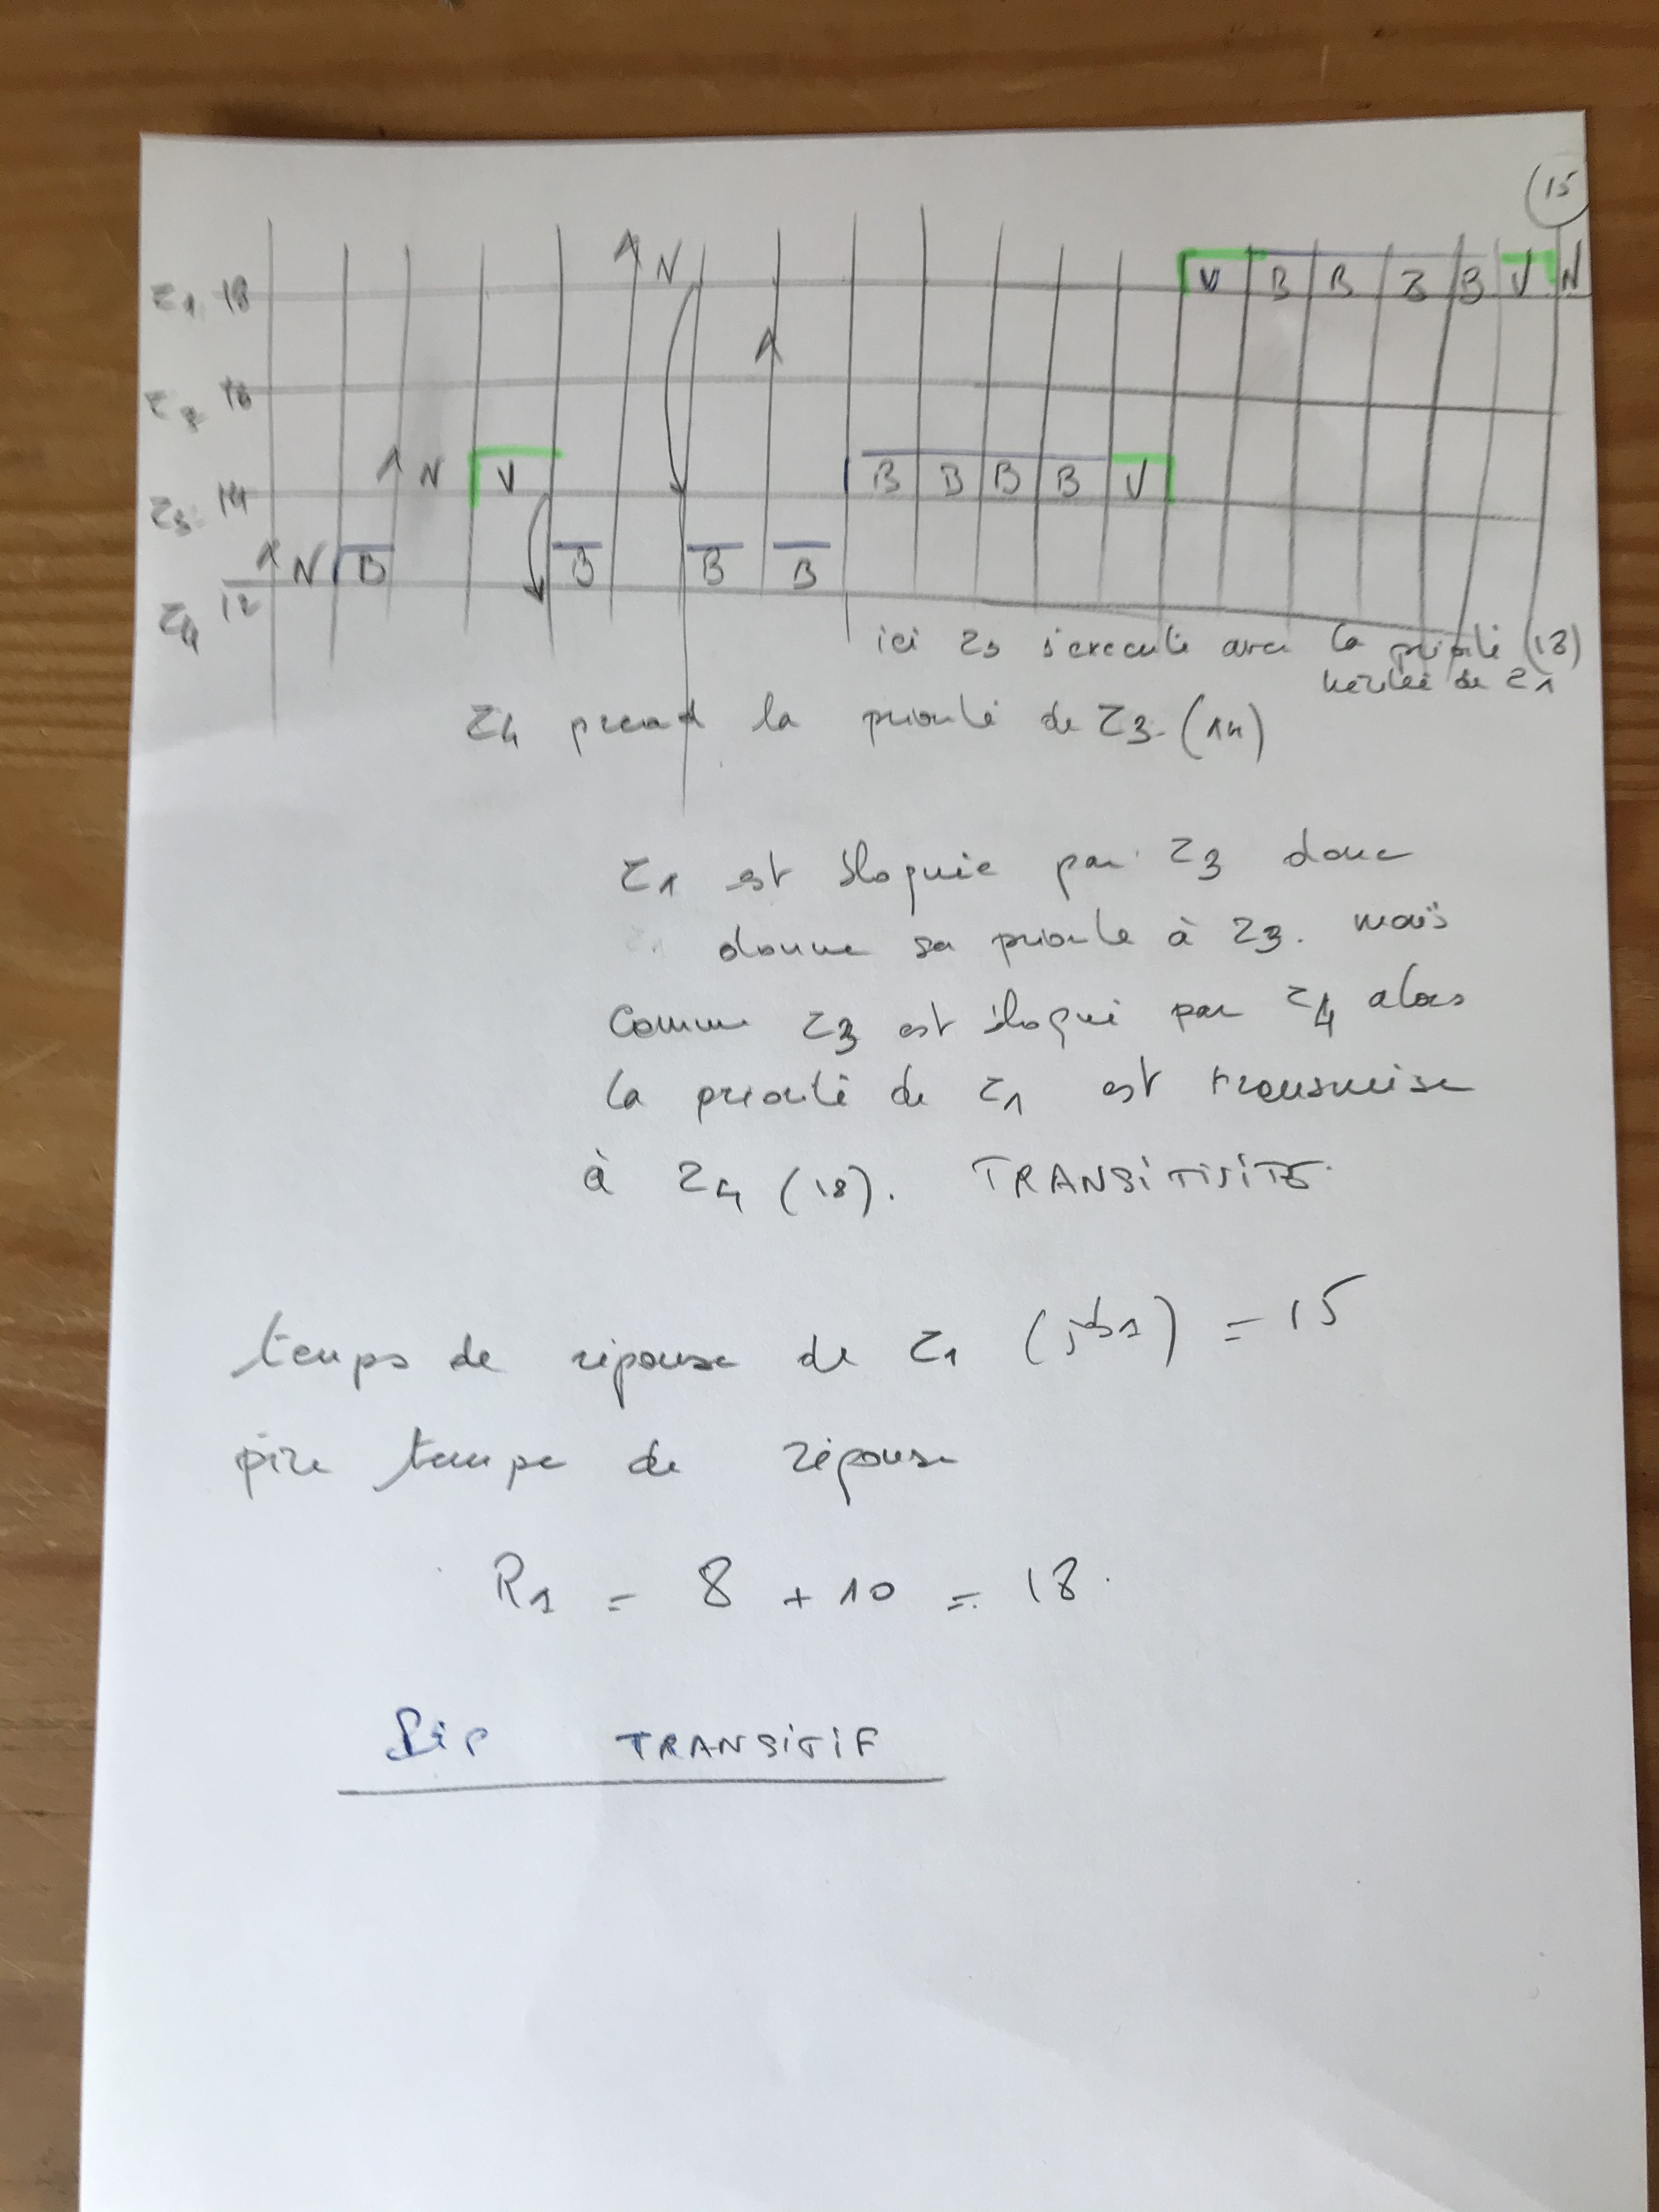 15
τ1 18 N V B B B B V N
τ2 16
τ3 14 N V B B B B V
N B B B B
τ4 12
ici τ3 s'execute avec la priorité (18)
héritée de τ1
τ4 prend la priorité de τ3. (14)
τ1 est bloquée par τ3 donc
donne sa priorité à τ3. mais
comme τ3 est bloqué par τ4 alors
la priorité de τ1 est transmise
à τ4 (18). TRANSITIVITE
temps de réponse de τ1 (job1) = 15
pire temps de réponse
R1 = 8 + 10 = 18.
PiP TRANSITIF